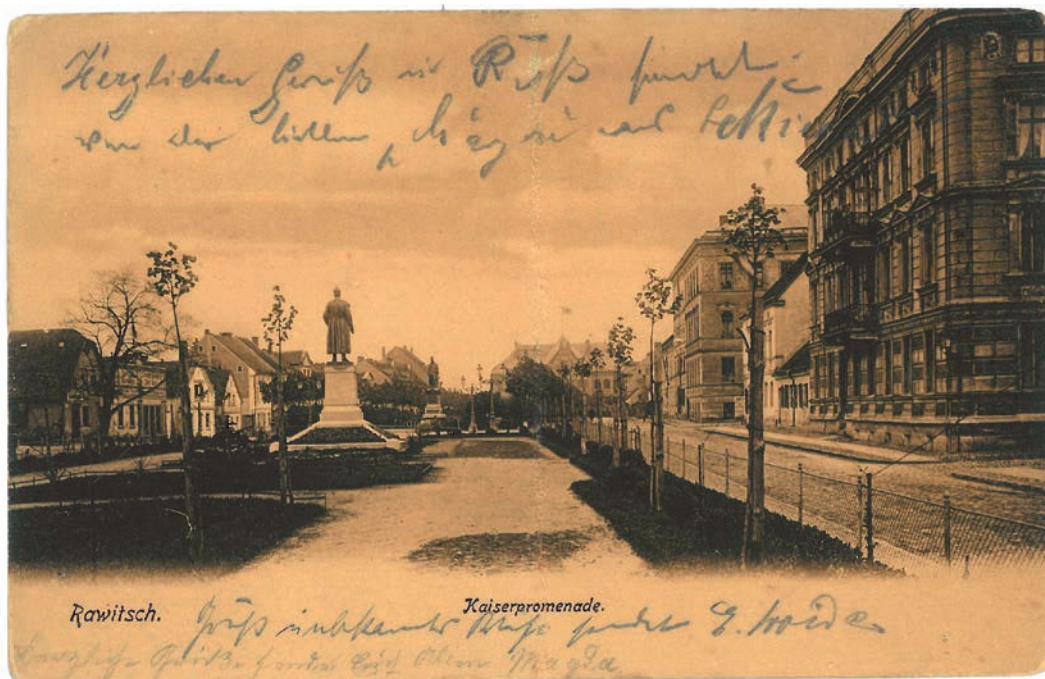 Herzlichen Gruß u Kuß sendet
von der lieben
Rawitsch.
Kaiserpromenade.
Gruß unbekannter Weise sendet E.
Herzliche Grüße sendet Euch Allen Magda